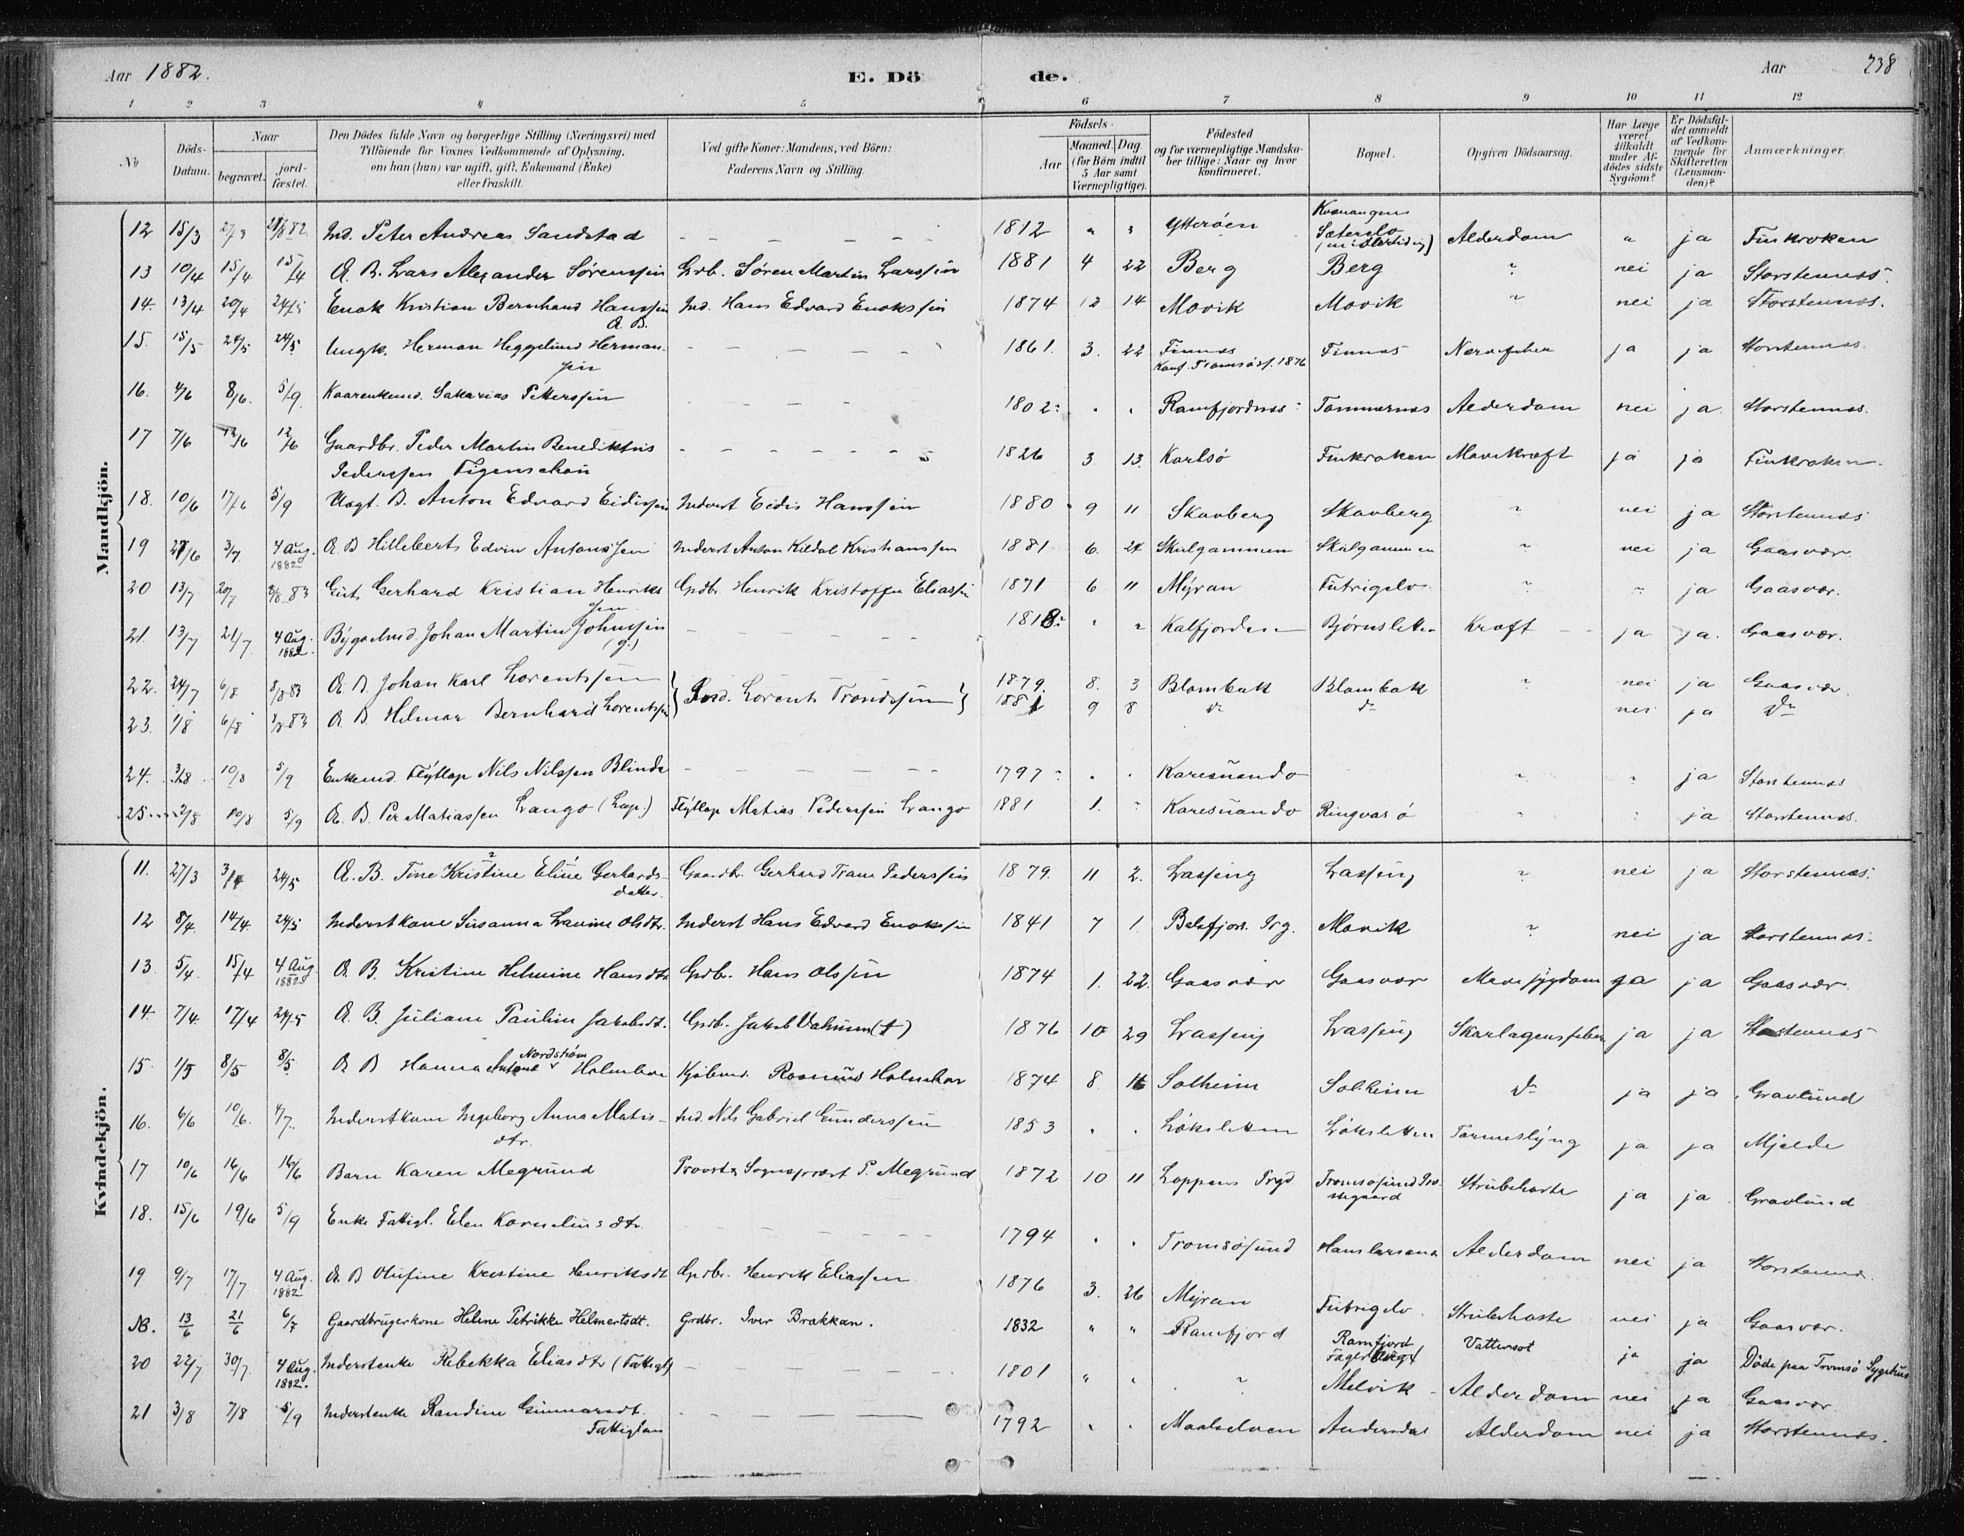 Aar 1882.
E. Döde.
Aar 238
1 2 3 4 5 6 7 8 9 10 11 12
No
Döds-Datum.
Naar
begravet.
jordfæstet.
Den Dödes fulde Navn og borgerlige Stilling (Næringsvei) med
Tilföiende for Voxnes Vedkommende af Oplysning,
om han (hun) var ugift, gift, Enkemand (Enke)
eller fraskilt.
Ved gifte Koner: Mandens, ved Börn:
Faderens Navn og Stilling.
Födsels-
Aar
Maaned. Dag
(for Börn indtil
5 Aar samt
Værnepligtige).
Födested
og for værnepligtige Mandskaber tillige: Naar og hvor
konfirmeret.
Bopæl.
Opgiven Dödsaarsag.
Har Læge
været
tilkaldt
under Afdödes sidste
Sygdom?
Er Dödsfaldet anmeldt
af Vedkommende for
Skifteretten
(Lensmanden)?
Anmærkninger.
Mandkjön.
12 15/3 27/3 21/8 82. Ind. Peter Andreas Sandstad 1812 " " Ytterøen Kvænangen Sæterelv (midlertidig) Alderdom " ja Finkroken
13 10/4 15/4 15/4 A. B. Lars Alexander Sørenssen Grdb. Søren Martin Larssen 1881 4 22 Berg Berg " nei ja Storstennæs.
14. 13/4 20/4 24/5 Enok Kristian Bernhard Hanssen A. B. Ind. Hans Edvard Enokssen 1874 12 14 Movik Movik " nei ja Storstennæs.
15. 15/5 24/5 24/5 Ungk. Herman Heggelund Hermanssen 1861. 3. 22 Finnæs Konf. Tromsøs. 1876 Finnæs Nervefeber ja ja Storstennæs.
16. 4/6 8/6. 5/9. Kaarenkemd. Sakarias Pettersen 1802 " " Ramfjordnæs Tommernæs Alderdom nei ja Storstennæs.
17 7/6 12/6 12/6 Gaardbr. Peder Martin Benediktus Pederssen Figenschau 1826 3. 13. Karlsø Finkroken Mavekræft ja ja Finkroken.
18. 10/6 17/6 5/9 Uægt. B. Anton Edvard Eidissen Inderst Eidis Hanssen 1880 9 11 Skavberg Skavberg " nei ja Storstennæs
19 27/6 3/7. 4 Aug. 1882 A. B. Hilleberts Edvin Antonssen Inderst Anton Kildal Kristianssen 1881 6. 24 Skulgammen Skulgammen " nei ja Gaasvær.
20 13/7 20/7 3/8 83 Gut Gerhard Kristian Henrikssen Grdb. Henrik Kristoffer Eliassen 1871 6 11 Myran Futrigelv " " ja Gaasvær.
21. 13/7 21/7 4 Aug. 1882. Bygselmd Johan Martin Johnssen (g.) 1818 " " Kalfjorden Bjørnsletten Kræft ja ja. Gaasvær.
22. 24/7 6/8 3/8 83 A. B. Johan Karl Lorentssen } Lorents Trondssen } 1879. 8. 3 Blombak Blombak " nei ja Gaasvær.
23. 1/8 6/8 3/8 83 A. B. Hilmar Bernhard Lorentssen 1881 9 8 do do nei ja do
24. 3/8 10/8 5/9 Enkemd. Flytlap Nils Nilssen Blinde 1797 " " Karesuando " " ja Storstennæs
25 2/8 10/8 5/9 A. B. Per Matiassen Lango (Lap.) Flytlap Matias Pederssen Lango 1881 1. " Karesuando Ringvasø " " ja Storstennæs.
Kvindekjön.
11. 27/3 3/4 24/5 A. B. Tine Kristine Eline Gerhardsdatter Gaardb. Gerhard Trane Pederssen 1879. 11 2. Lasseng Lasseng " nei ja Storstennæs.
12 8/4. 14/4 24/5 Inderstkone Susanna Lavine Olsdtr. Inderst Hans Edvard Enokssen 1841 7 1. Balsfjord Prg. Movik " nei ja Storstennæs.
13. 5/4. 15/4 4 Aug 1882 A. B. Kristine Helmine Hansdtr Grdb. Hans Olssen 1874 1. 22. Gaasvær Gaasvær Mavesygdom ja ja Gaasvær.
14. 7/4. 17/4 24/5 A. B. Juliane Pauline Jakobsdt. Grdb. Jakob (†) 1876 10 29 Lasseng Lasseng Skarlagensfeber ja ja Storstennæs
15 1/5 8/5 8/5. A. B. Hanna Antone Nordstrøm Holmboe Kjøbmd. Rasmus Holmboe 1874 8. 16 Solheim Solheim do ja ja Gravlund
16. 6/6 10/6. 4/7. Inderstkone Ingeborg Anna Matisdtr. Ind. Nils Gabriel Gunderssen 1853 " " Løksletten Løksletten Tarmeslyng ja ja Mjelde
17 10/6 16/6 16/6 Barn Karen Megrund Provst & Sognepræst P. Megrund 1872 10 11 Loppens Prgd Tromsøsund Præstegaard Strubehoste ja ja Gravlund
18. 15/6 19/6 5/9 Enke Fattigl. Elen Korneliusdtr. 1794 " " Tromsøsund Alderdom nei ja Storstennæs.
19 9/7 17/7 4 Aug. 1882 A. B. Olufine Kristine Henriksdt Grdbr. Henrik Eliassen 1876 3. 26 Myran Futrigelv Strubehoste nei ja Gaasvær.
NB. 13/6 21/6 6/7 Gaardbrugerkone Helene Petrikke Helmertsdt. Grdbr. Iver Brækkan. 1832 " " Ramfjord Ramfjord Vattersot ja ja Døde paa Tromsø Sygehus
20 22/7 30/7 4 Aug. 1882. Inderstenke Rebekka Eliasdtr (Fattigl) 1801 " " " Melvik Alderdom nei ja Gaasvær.
21 3/8 7/8 5/9 Inderstenke Randine Gunnarsdt. Fattiglem 1792 " " Maalselven Andersdal Alderdom nei ja Storstennæs.